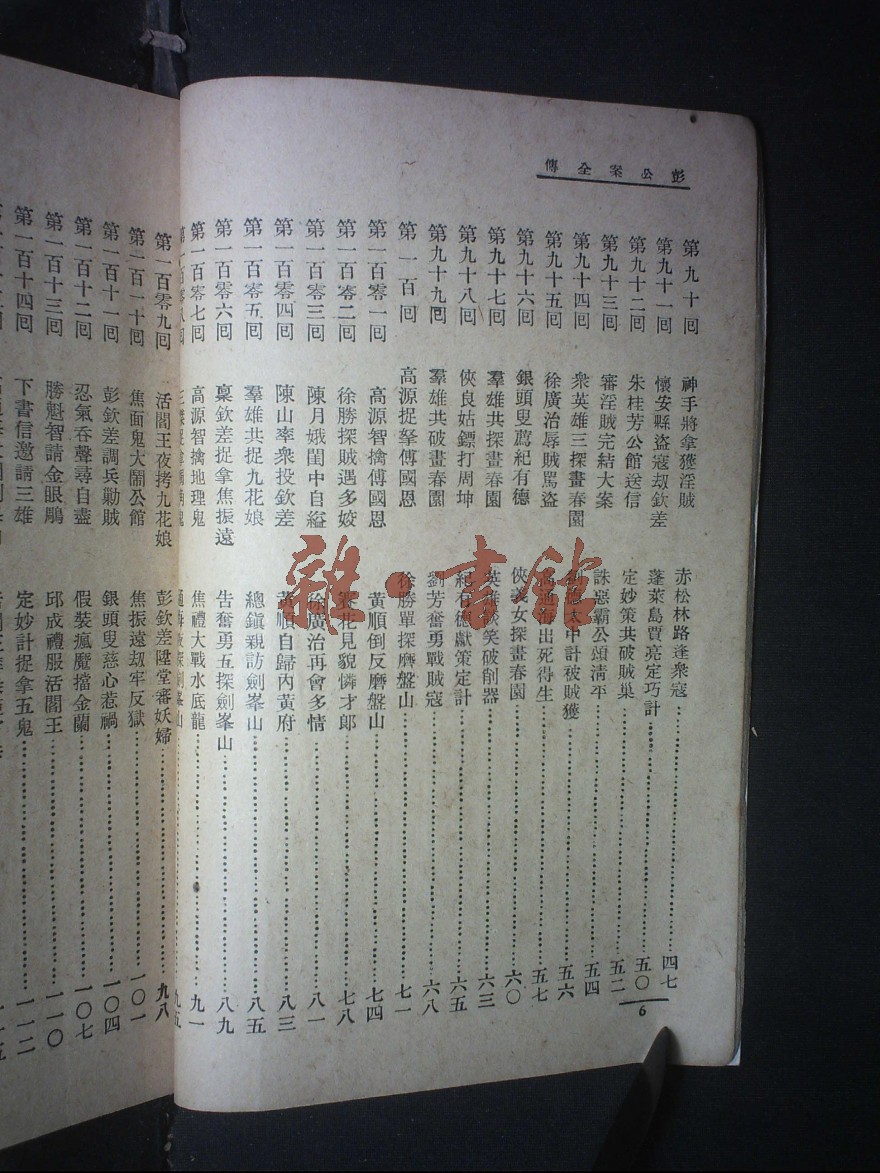 彭公案全傳
第九十回 神手將拿獲淫賊 赤松林路逢衆寇 四七
第九十一回 懷安縣盜寇刼欽差 蓬萊島賈亮定巧計 五〇
第九十二回 朱桂芳公館送信 定妙策共破賊巢 五二
第九十三回 審淫賊完結大案 誅惡霸公頌淸平 五四
第九十四回 衆英雄三探畫春園 太中計被賊獲 五六
第九十五回 徐廣治辱賊罵盜 出死得生 五七
第九十六回 銀頭叟薦紀有德 俠義女探畫春園 六〇
第九十七回 羣雄共探畫春園 英雄談笑破削器 六三
第九十八回 俠良姑鏢打周坤 紀有德獻策定計 六五
第九十九回 羣雄共破畫春園 劉芳奮勇戰賊寇 六八
第一百回 高源捉拏傅國恩 徐勝單探磨盤山 七一
第一百零一回 高源智擒傅國恩 黃順倒反磨盤山 七四
第一百零二回 徐勝探賊遇多姣 賽花見貌憐才郎 七八
第一百零三回 陳月娥閨中自縊 徐廣治再會多情 八一
第一百零四回 陳山率衆投欽差 黃順自歸內黃府 八三
第一百零五回 羣雄共捉九花娘 總鎭親訪劍峯山 八五
第一百零六回 稟欽差捉拿焦振遠 告奮勇五探劍峯山 八九
第一百零七回 高源智擒地理鬼 焦禮大戰水底龍 九一
第一百零八回 九五
第一百零九回 活閻王夜拷九花娘 彭欽差陞堂審妖婦 九八
第一百一十回 焦面鬼大鬧公館 焦振遠刼牢反獄 一〇一
第一百十一回 彭欽差調兵勦賊 銀頭叟慈心惹禍 一〇四
第一百十二回 忍氣吞聲尋自盡 假裝瘋魔擋金蘭 一〇七
第一百十三回 勝魁智請金眼鵰 邱成禮服活閻王 一一〇
第一百十四回 下書信邀請三雄 定妙計捉拿五鬼 一一二
6
雜·書館